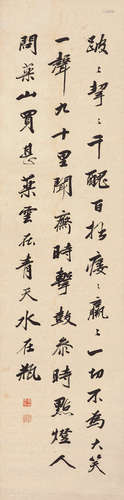 跛〻挈〻千醜百拙瘦〻羸〻一切不為大笑
一聲九十里聞齋時擊鼓參時點燈人
問藥山買甚藥雲在青天水在瓶